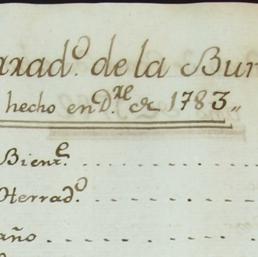 arad.º de la Bur
hecho en D.re de 1783,,
Bient.e
Herrad.º
año